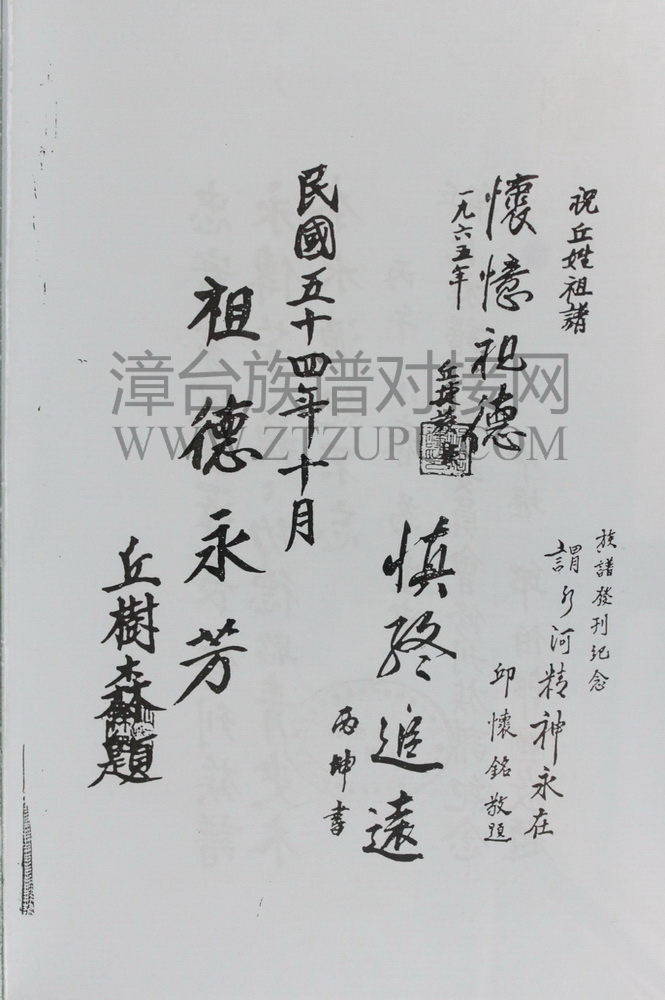 祝丘姓祖諸
懷憶祖德
一九六五年
丘捷
族譜發刊紀念
河精神永在
邱懷銘敬題
慎終追遠
丙坤書
民國五十四年十月
祖德永芳
丘樹森題
漳台族谱对接网
WWW.ZTZUPU.COM